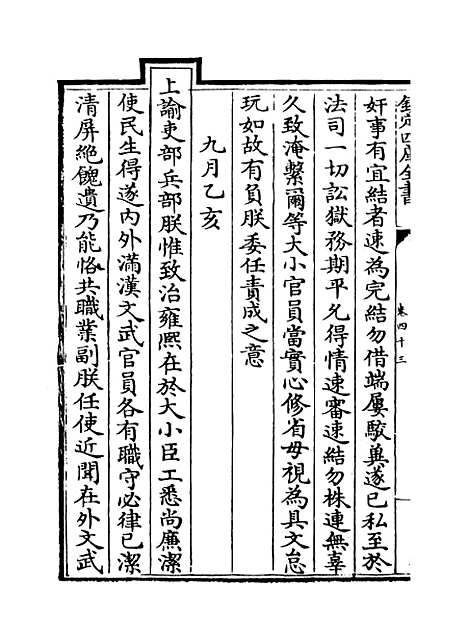 欽定四庫全書
卷四十三
奸事有宜結者速為完結勿借端屢駁冀遂已私至於
法司一切訟獄務期平允得情速審速結勿株連無辜
久致淹繫爾等大小官員當實心修省毋視為具文怠
玩如故有負朕委任責成之意
九月乙亥
上諭吏部兵部朕惟致治雍熙在於大小臣工悉尚廉潔
使民生得遂內外滿漢文武官員各有職守必律已潔
清屏絕餽遺乃能恪共職業副朕任使近聞在外文武